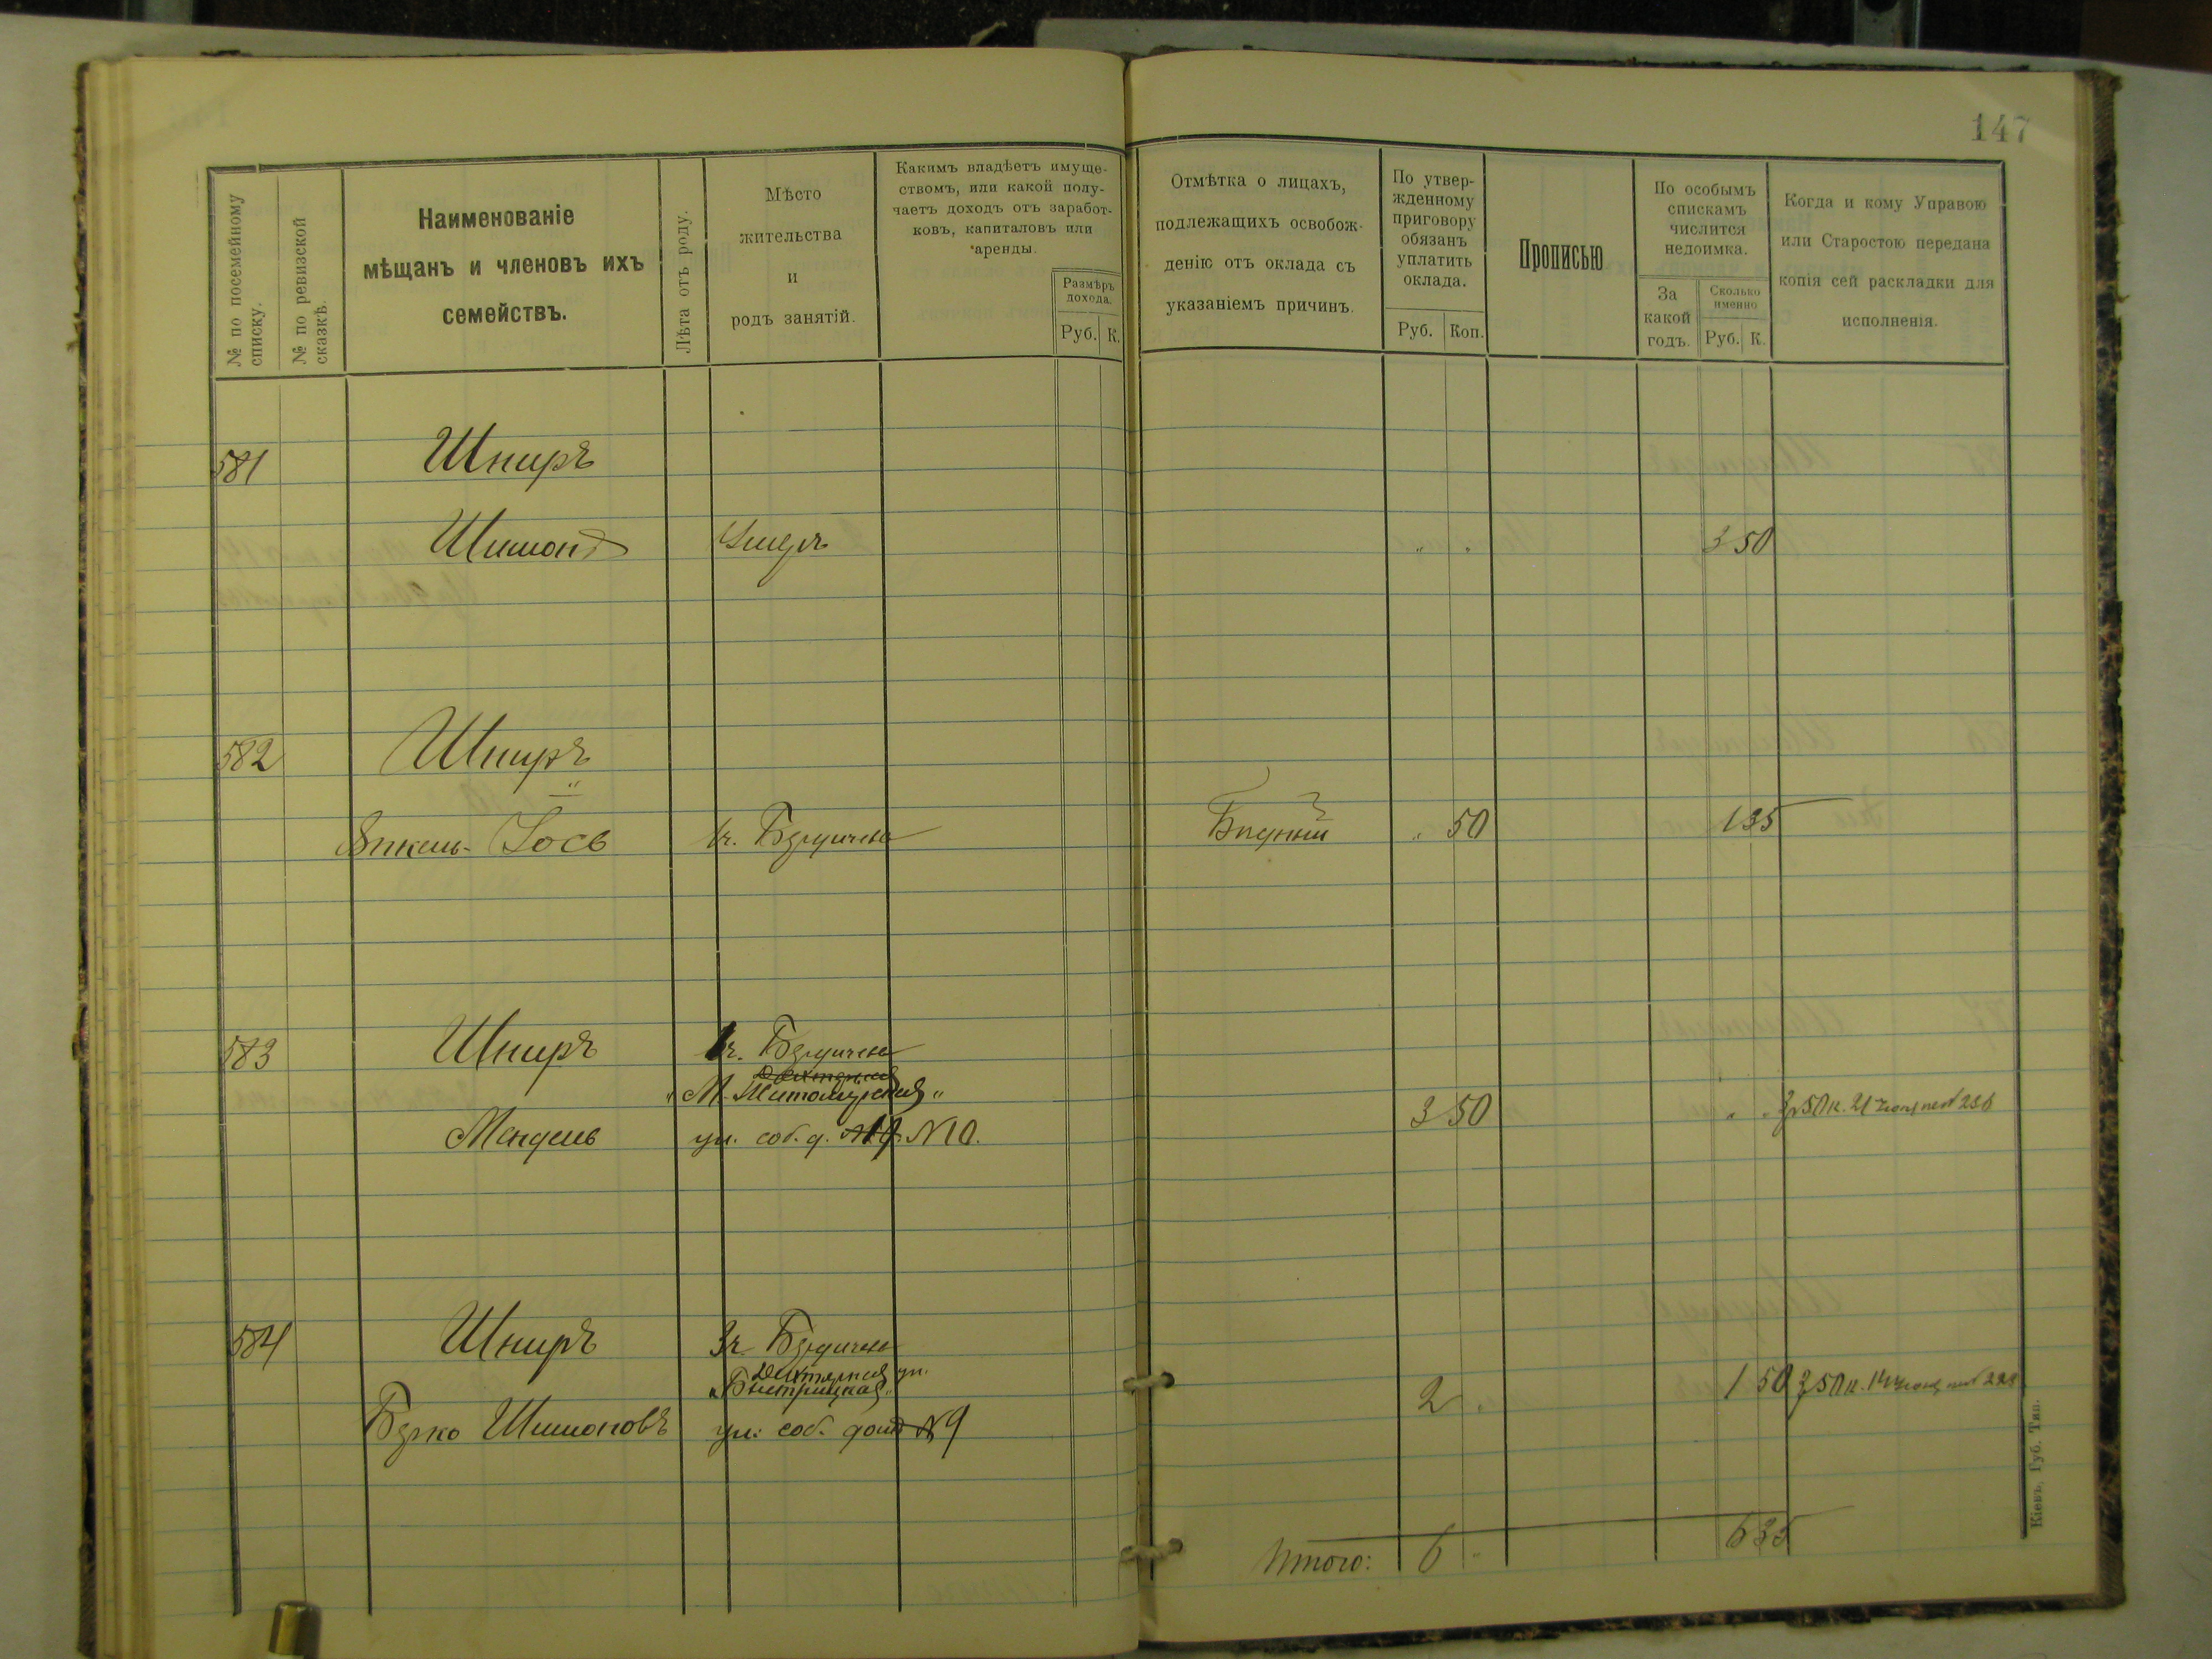 147
№ по посемейному списку.
№ по ревизской сказкѣ.
Наименованіе
мѣщанъ и членовъ ихъ
семействъ.
Лѣта отъ роду.
Мѣсто
жительства
и
родъ занятій.
Какимъ владѣетъ имуще-
ствомъ, или какой полу-
чаетъ доходъ отъ заработ-
ковъ, капиталовъ или
аренды.
Размѣръ
дохода.
Руб. К.
Отмѣтка о лицахъ,
подлежащихъ освобож-
денію отъ оклада съ
указаніемъ причинъ.
По утвер-
жденному
приговору
обязанъ
уплатить
оклада.
Руб. Коп.
Прописью
По особымъ
спискамъ
числится
недоимка.
За
какой
годъ.
Сколько
именно
Руб. К.
Когда и кому Управою
или Старостою передана
копія сей раскладки для
исполненія.
581 Шниръ
Шимонъ Умеръ " " 3 50
582 Шниръ
Янкель-Іось 1ч. Бердичева Бѣдный " 50 1 35
583 Шниръ 1ч. Бердичева
"М-Житомирская"
Мендель ул. соб. д. №19. №10. 3 50 " " 3р50к. 21
584 Шниръ 3ч. Бердичева
Дехтярная ул.
"Быстрицкая"
Берко Шимоновъ ул. соб. домъ №9 2 " 1 50 3р50к. 14
Итого: 6 " 6 35
Кіевъ, Губ. Тип.